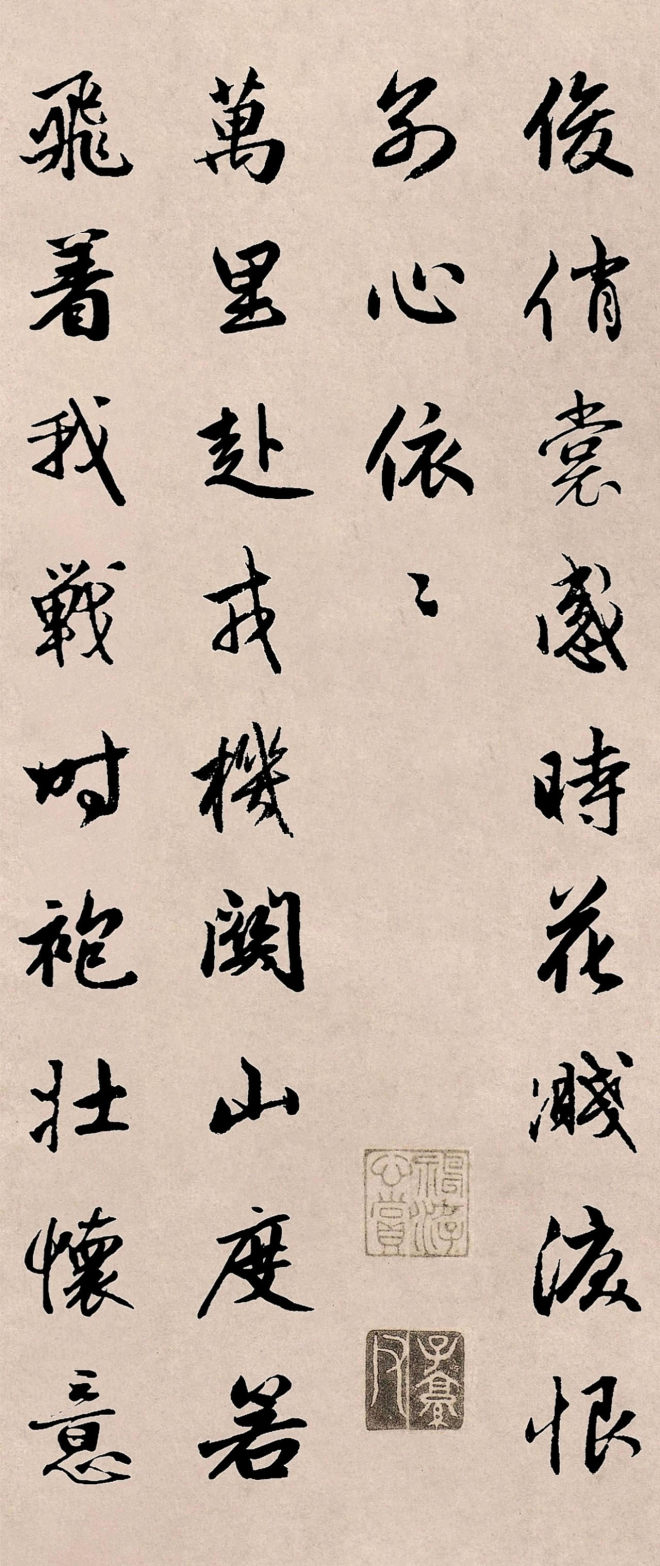 俊俏裳感時花濺淚恨
別心依〻
萬里赴戎機關山度若
飛着我戰时袍壯懷意